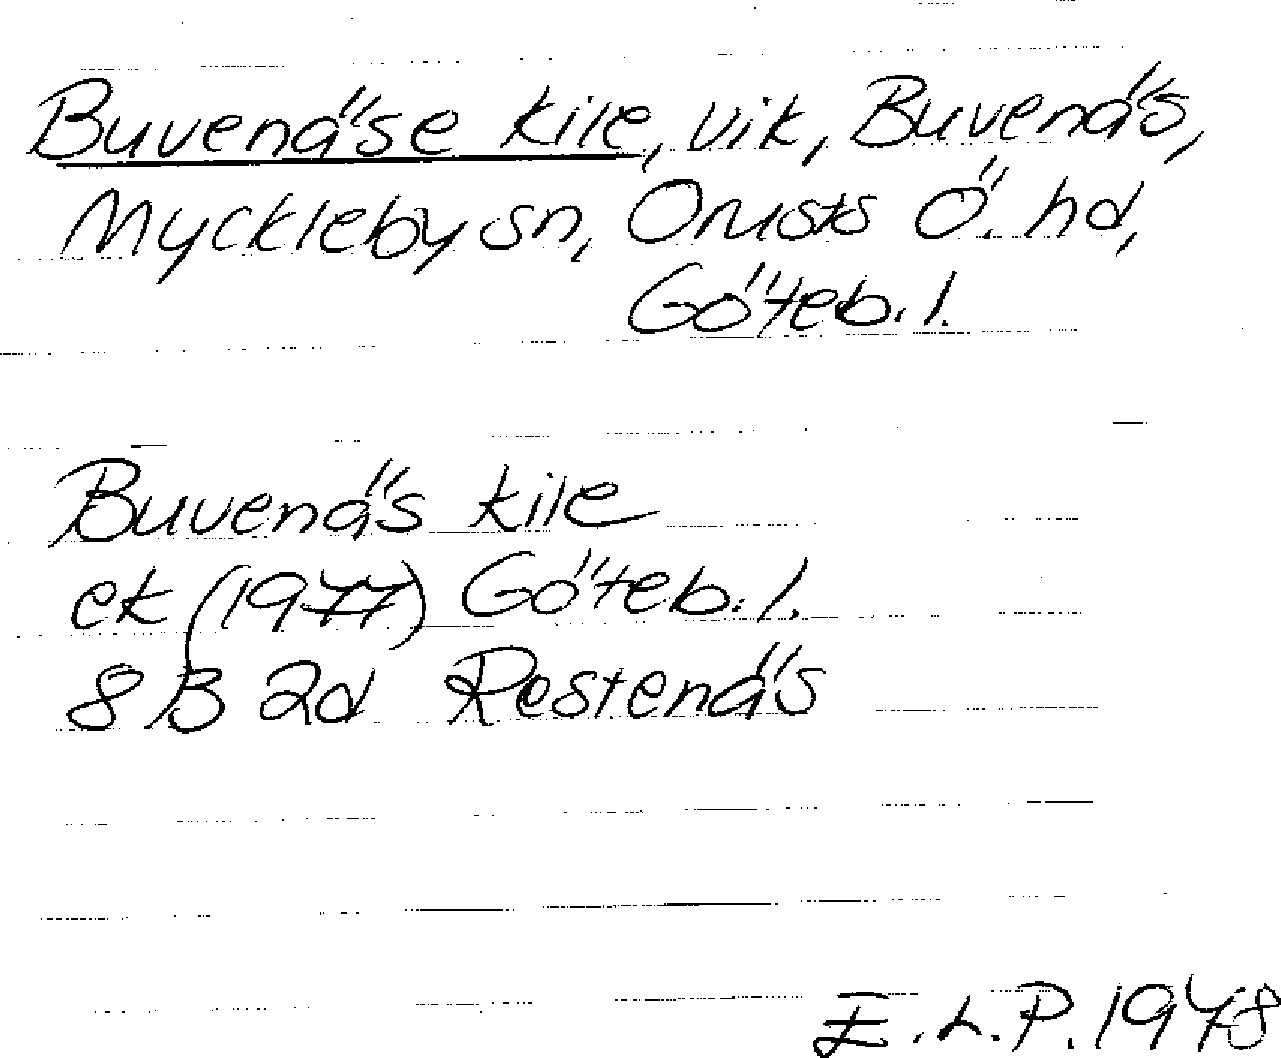 Buvenäse kile, vik, Buvenäs,
Myckleby sn, Orusts Ö. hd,
Göteb. l.
Buvenäs kile
ek (1977) Göteb. l.
8B 2d Restenäs
E.L.P. 1978